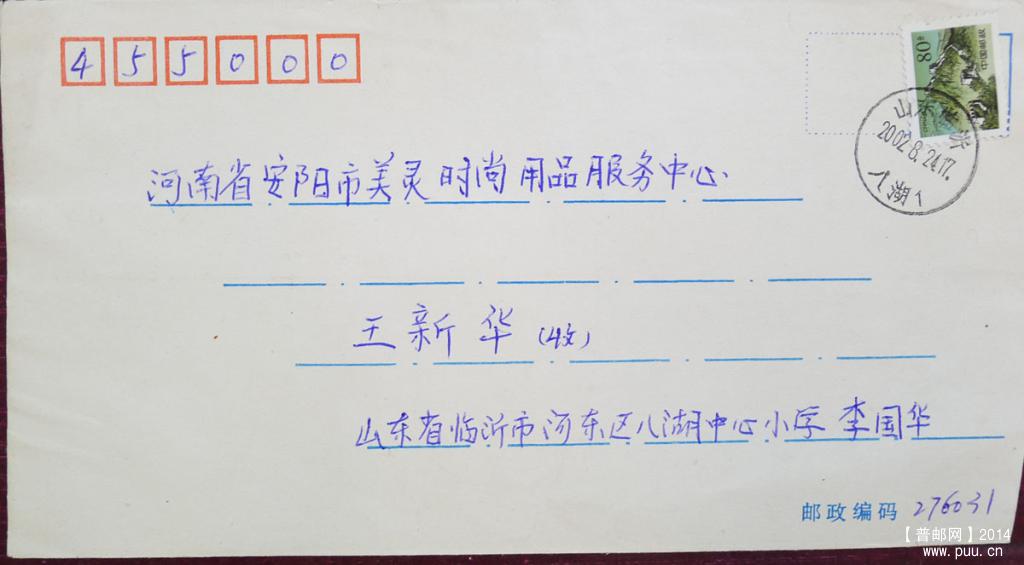 455000
80分
中国邮政
山东临沂
2002.8.24.17.
八湖1
河南省安阳市美灵时尚用品服务中心
王新华(收)
山东省临沂市河东区八湖中心小学 李国华
邮政编码 276031
【普邮网】2014
www.puu.cn